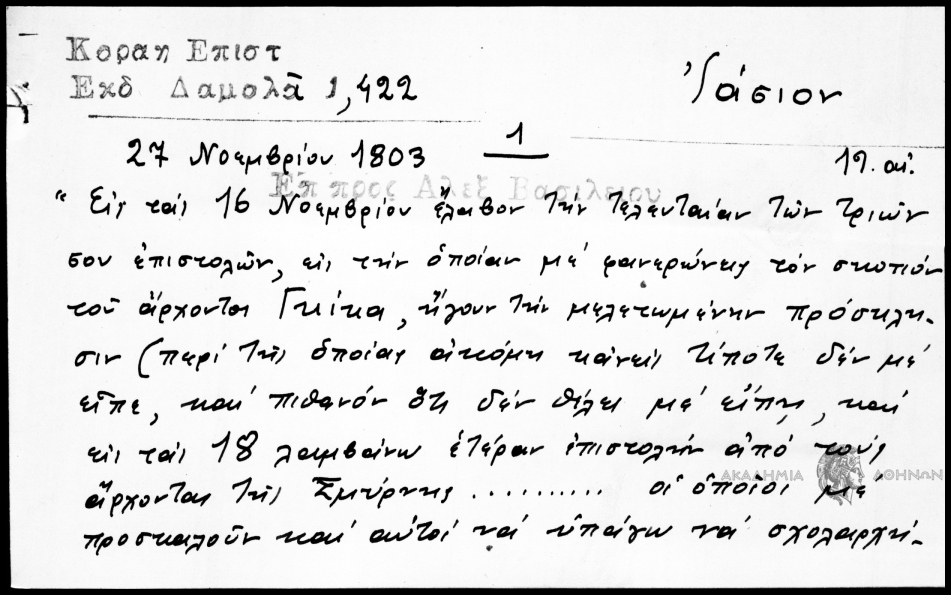 Κοραη Επιστ
Εκδ Δαμαλᾶ 1,422
Ἰάσιον
1
27 Νοεμβρίου 1803
19. αἰ.
Επ προς Αλεξ Βασιλειου
"Εἰς ταῖς 16 Νοεμβρίου ἔλαβον τὴν τελευταίαν τῶν τριῶν
σου ἐπιστολῶν, εἰς τὴν ὁποίαν μὲ φανερώνεις τὸν σκοπὸν
τοῦ ἄρχοντος Γκίκα, ἤγουν τὴν μελετωμένην πρόσκλη-
σιν (περὶ τῆς ὁποίας ἀκόμη κἀνεὶς τίποτε δὲν μὲ
εἶπε, καὶ πιθανὸν ὅτι δὲν θέλει μὲ εἴπῃ, καὶ
εἰς ταῖς 18 λαμβάνω ἑτέραν ἐπιστολὴν ἀπὸ τοὺς
ἄρχοντας τῆς Σμύρνης .......... οἱ ὁποῖοι μὲ
προσκαλοῦν καὶ αὐτοὶ νὰ ὑπάγω νὰ σχολαρχή-
ΑΚΑΔΗΜΙΑ ΑΘΗΝΩΝ